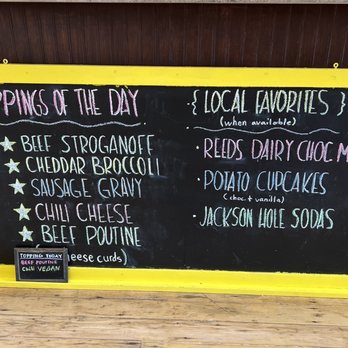 PPINGS OF THE DAY
BEEF STROGANOFF
CHEDDAR BROCCOLI
SAUSAGE GRAVY
CHILI CHEESE
BEEF POUTINE
cheese curds)
TOPPING TODAY
BEEF POUTINE
CHILI VEGAN
{ LOCAL FAVORITES }
(when available)
• REEDS DAIRY CHOC M
• POTATO CUPCAKES
(choc. + vanilla)
• JACKSON HOLE SODAS